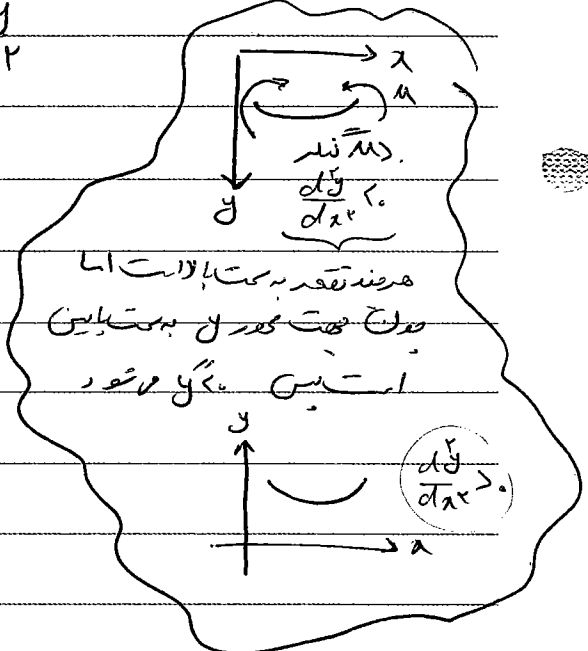 y
۲
x
M
y
d²y/dx² <۰
هر چند تقعر به سمت بالا است اما
چون جهت محور y به سمت پایین
است پس y″<۰ می شود
y
d²y/dx² >۰
x